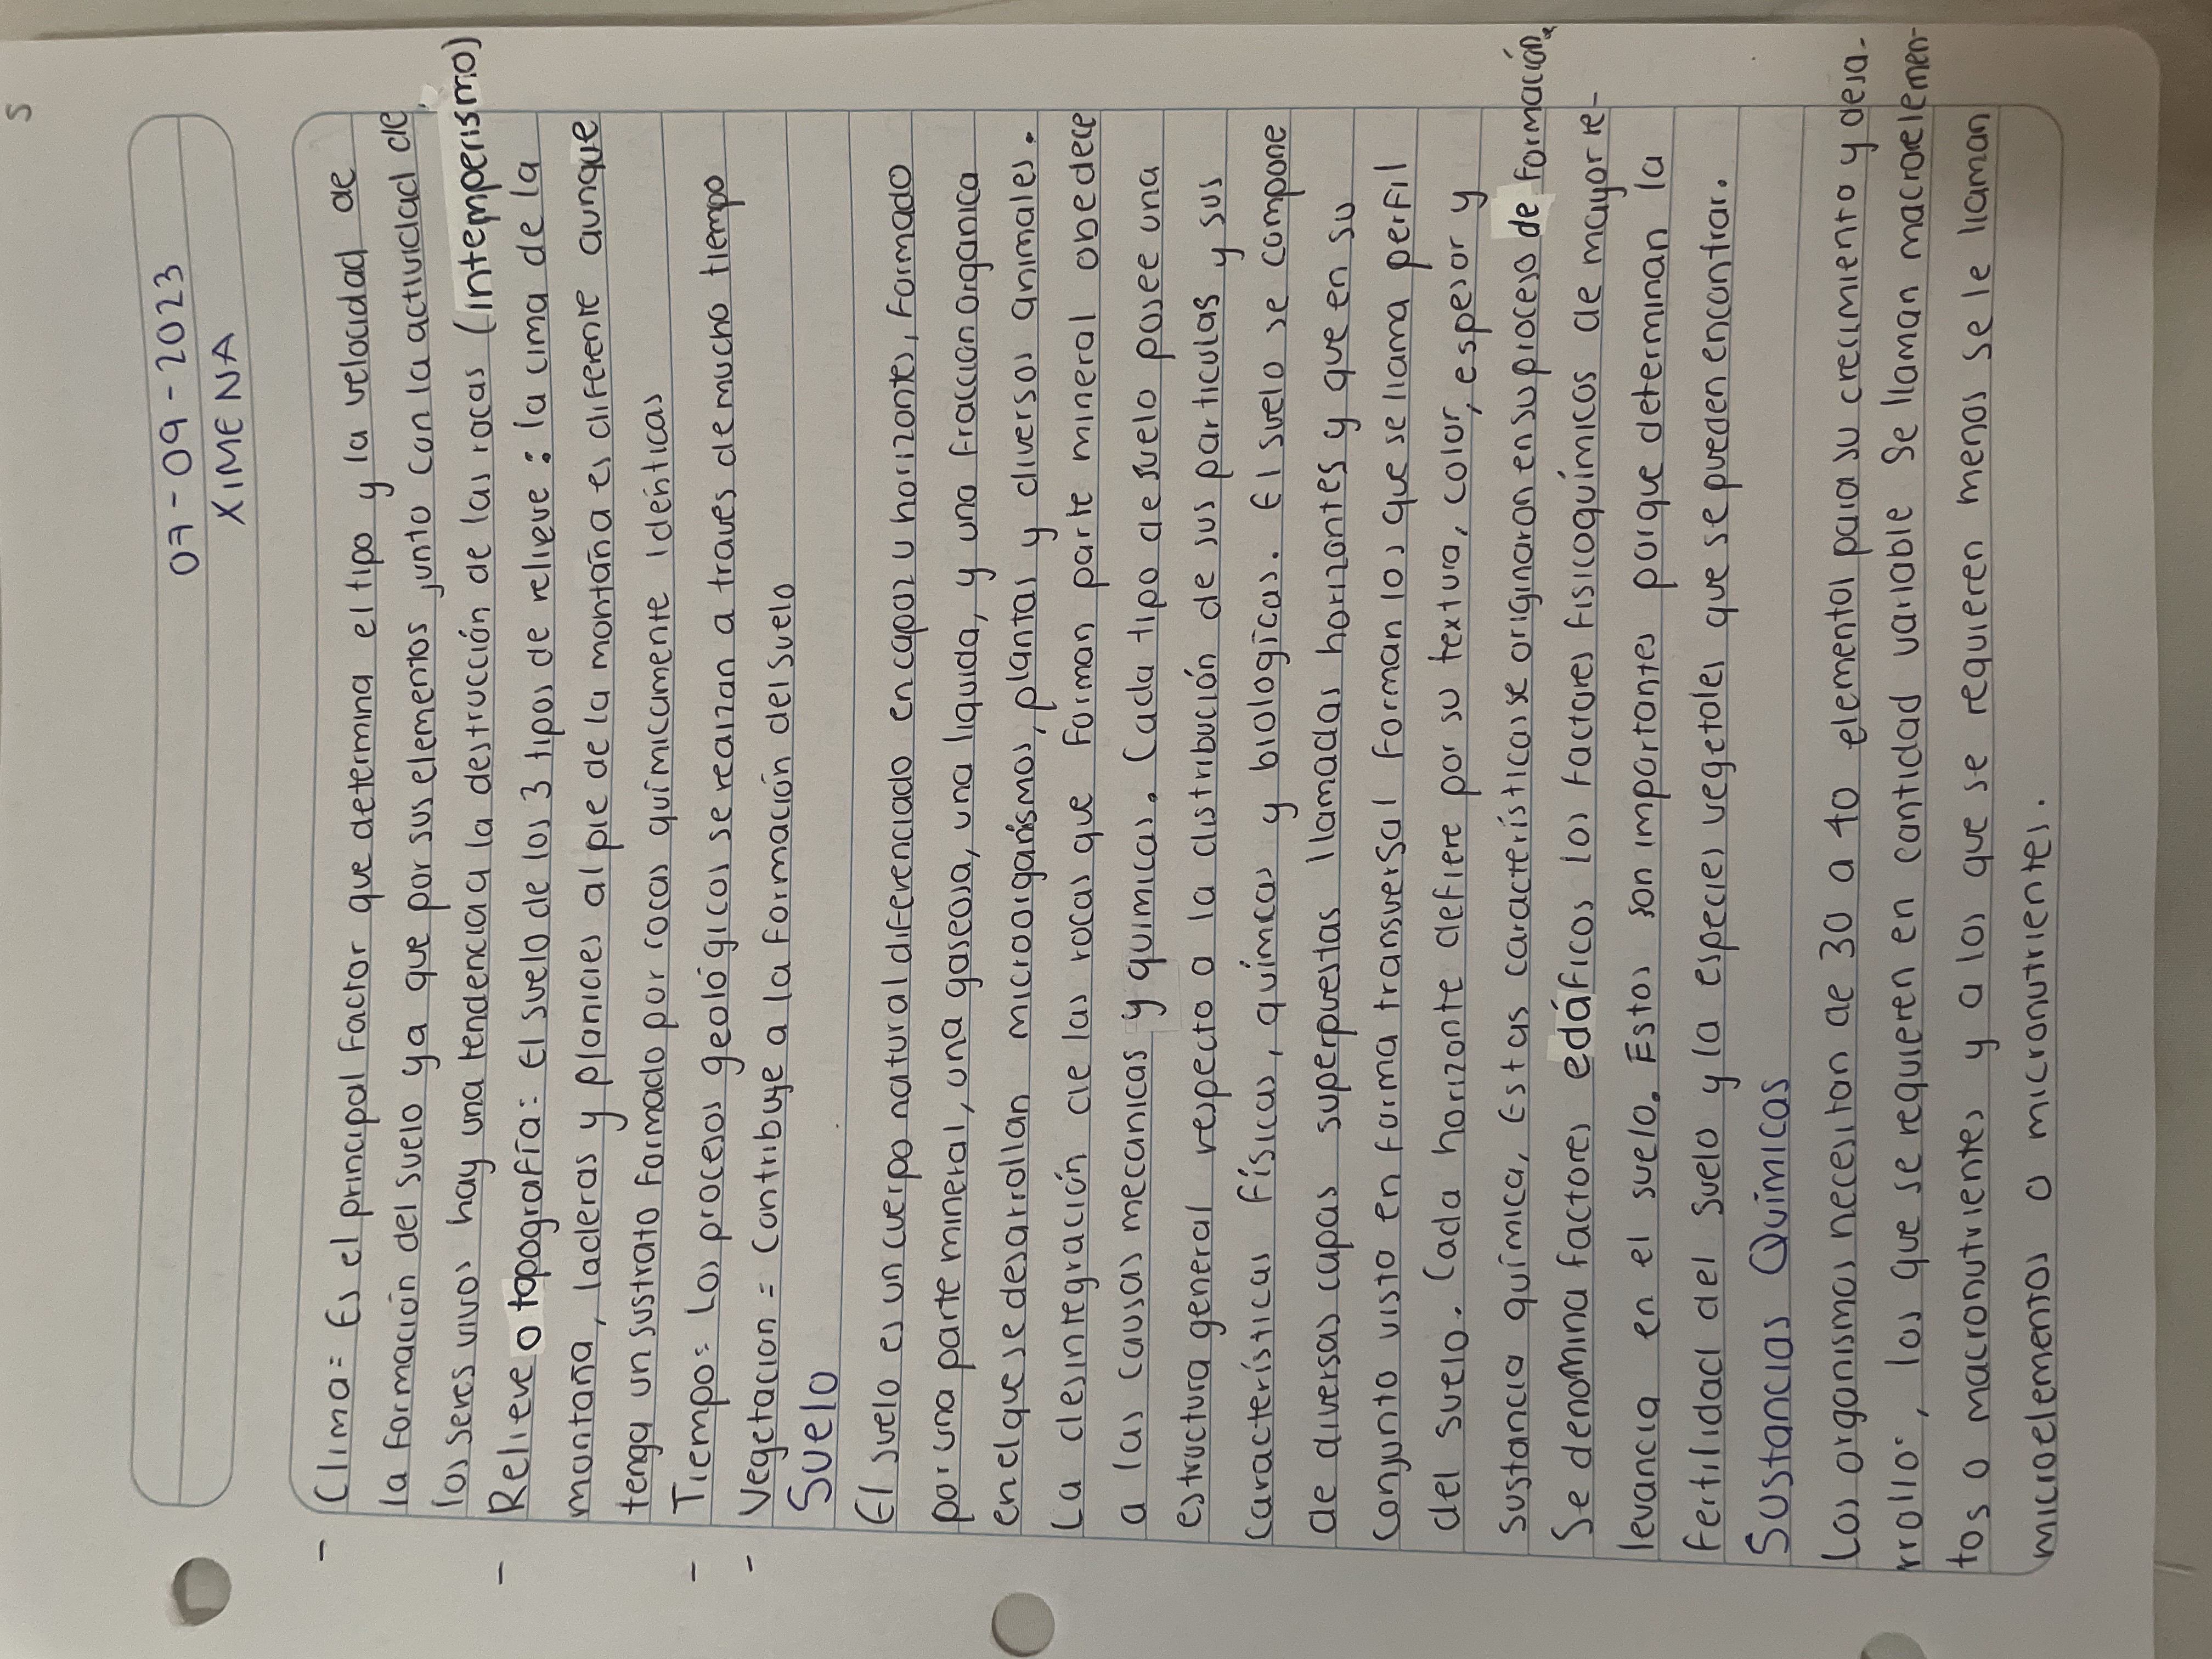 5
07-09-2023
XIMENA
- Clima = Es el principal factor que determina el tipo y la velocidad de
la formación del suelo ya que por sus elementos junto con la actividad de
los seres vivos hay una tendencia a la destrucción de las rocas (intemperismo)
- Relieve o topografía: El suelo de los 3 tipos de relieve: la cima de la
montaña, laderas y planicies al pie de la montaña es diferente aunque
tenga un sustrato formado por rocas químicamente idénticas
- Tiempo: Los procesos geológicos se realzan a traves de mucho tiempo
- Vegetacion = Contribuye a la formación del suelo
Suelo
El suelo es un cuerpo natural diferenciado en capas u horizontes, formado
por una parte mineral, una gaseosa, una liquida, y una fraccion organica
en el que se desarrollan microorganismos, plantas y diversos animales.
La desintegración de las rocas que forman parte mineral obedece
a las causas mecanicas y quimicas. Cada tipo de suelo posee una
estructura general respecto a la distribución de sus particulas y sus
características físicas, químicas y biologicas. El suelo se compone
de diversas capas superpuestas llamadas horizontes y que en su
conjunto visto en forma transversal forman los que se llama perfil
del suelo. Cada horizonte defiere por su textura, color, espesor y
sustancia química, Estas características se originaron en su proceso de formación.
Se denomina factores edáficos los factores fisicoquímicos de mayor re-
levancia en el suelo. Estos son importantes porque determinan la
fertilidad del suelo y la especies vegetales que se pueden encontrar.
Sustancias Químicas
Los organismos necesitan de 30 a 40 elemental para su crecimiento y desa-
rrollo, los que se requieren en cantidad variable Se llaman macroelemen-
tos o macronutrientes y a los que se requieren menos se le llaman
microelementos o micronutrientes.